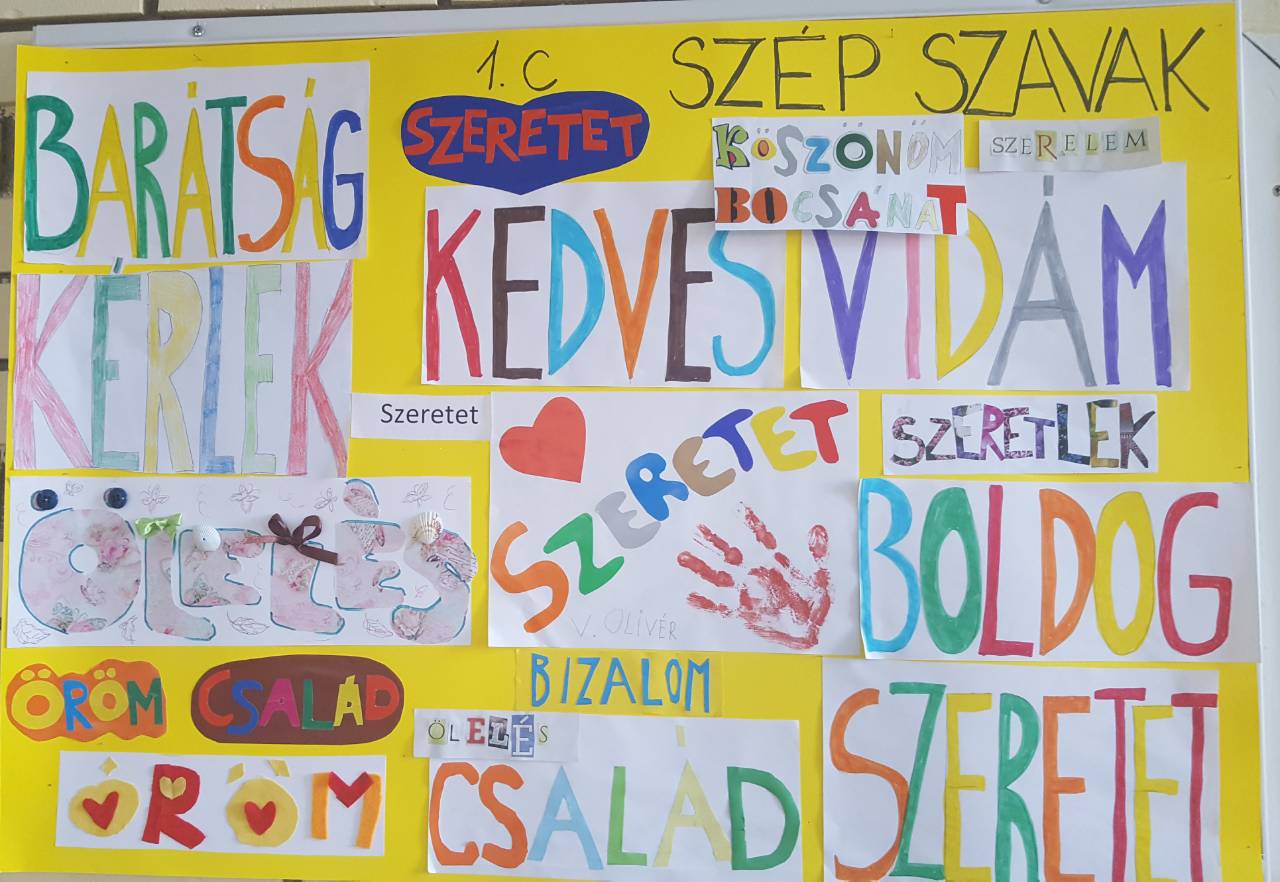 1. C
SZÉP SZAVAK
BARÁTSÁG
SZERETET
KÖSZÖNÖM
BOCSÁNAT
SZERELEM
KEDVES
VIDÁM
KÉRLEK
Szeretet
SZERETET
V. OLIVÉR
SZERETLEK
ÖLELÉS
BOLDOG
ÖRÖM
CSALÁD
BIZALOM
ÖLELÉS
ÖRÖM
CSALÁD
SZERETET